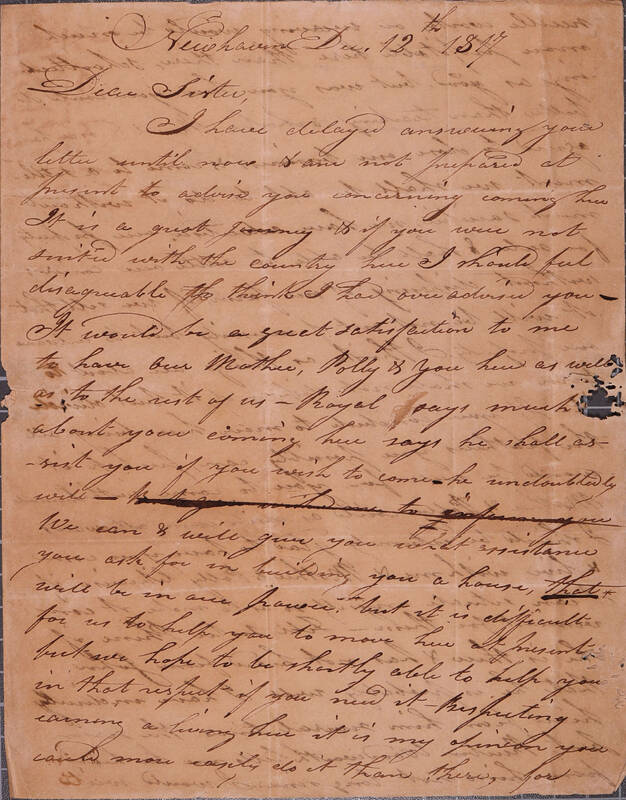 Newhaven Dec. 12th 1817
Dear Sister,
I have delayed answering your
letter until now & am not prepared at
present to advise you concerning coming here
It is a great journey & if you were not
suited with the country here I should feel
disagreeable to think I had over advised you –
It would be a great satisfaction to me
to have our Mother, Polly & you here as well
as to the rest of us – Royal says much
about your coming here says he shall as-
-sist you if you wish to come – he undoubtedly
will – to inform you
We can & will give you what assistance
you ask for in building you a house, that
will be in our power, but it is difficult
for us to help you to move here at present
but we hope to be shortly able to help you
in that respect if you need it – Respecting
earning a living here it is my opinion you
could more easily do it than there, for